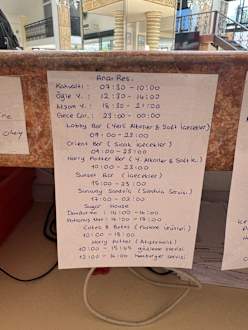 Ana Res.
Kahvaltı : 07:30 - 10:00
Öğle Y. : 12:30 - 14:00
Akşam Y. : 18:30 - 21:00
Gece Çor. : 23:00 - 00:00
Lobby Bar (Yerli Alkoller & Soft İçecekler)
09:00 - 23:00
Orient Bar (Sıcak İçecekler)
09:00 - 23:00
Harry Potter Bar (Y. Alkoller & Soft İ.)
10:00 - 23:00
Sunset Bar (İçecekler)
10:00 - 23:00
Servisi)
17:00 - 03:00
Sugar House
Dondurma : 14:00 - 16:00
16:00 - 18:00
Cakes & Bakes (Pastane Ürünleri)
10:00 - 18:00
Harry Potter (Atıştırmalık)
10:00 - 15:45 gözleme servisi
12:00 - 16:00 hamburger servisi